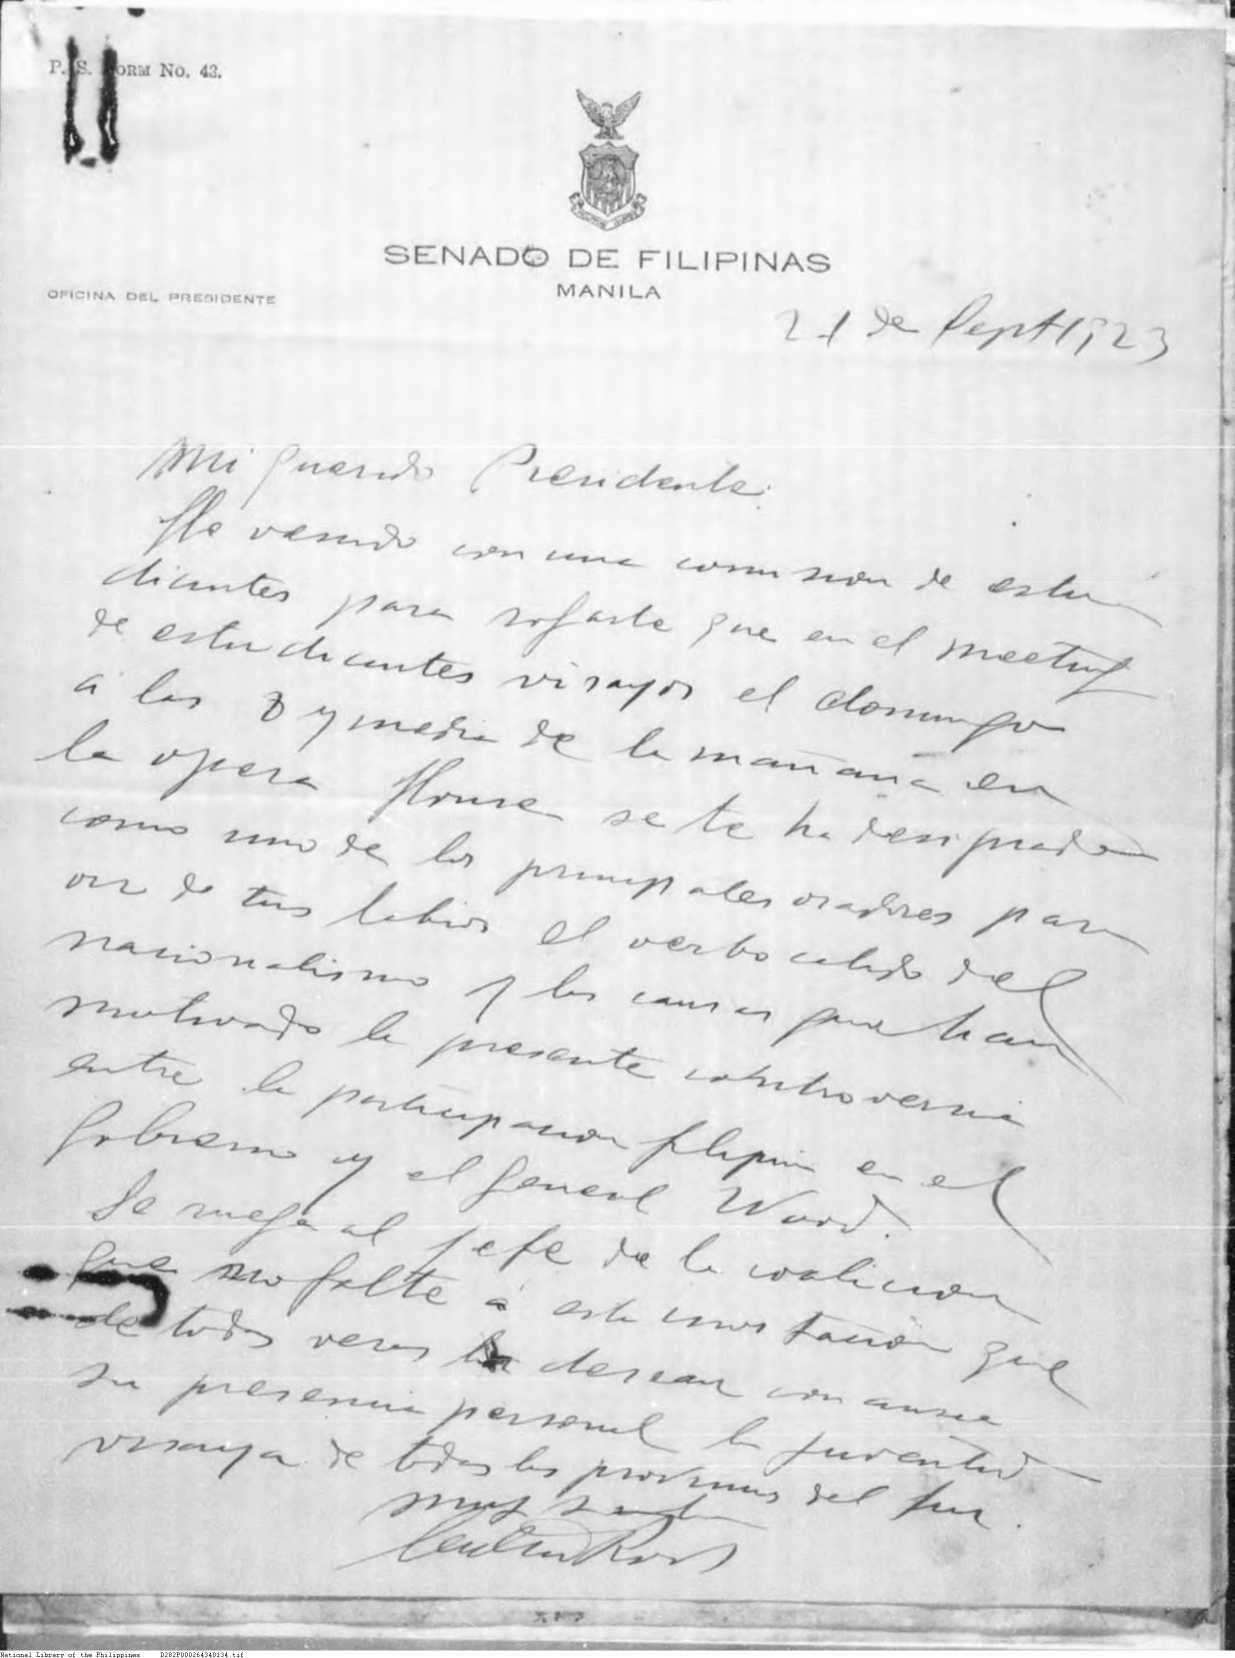 P. S. FORM No. 43.
SENADO DE FILIPINAS
MANILA
OFICINA DEL PRESIDENTE
21 de Sept 1923
Mi querido Presidente:
He venido con una comision de estu-
diantes para rogarte que en el meeting
de estudiantes visayos el domingo
á las 8 y media de la mañana en
la opera House se te ha designado
como uno de los principales oradores para
oir de tus labios el verbo calido del
nacionalismo y las causas que han
motivado la presente controversia
entre la participacion filipina en el
Gobierno y el General Wood.
Se ruega al jefe de la coalicion
que no falte á esta invitacion que
de todas veras desean con ansia
su presencia personal la juventud
visaya de todas las provincias del sur.
muy
National Library of the Philippines D282P000264340134.tif